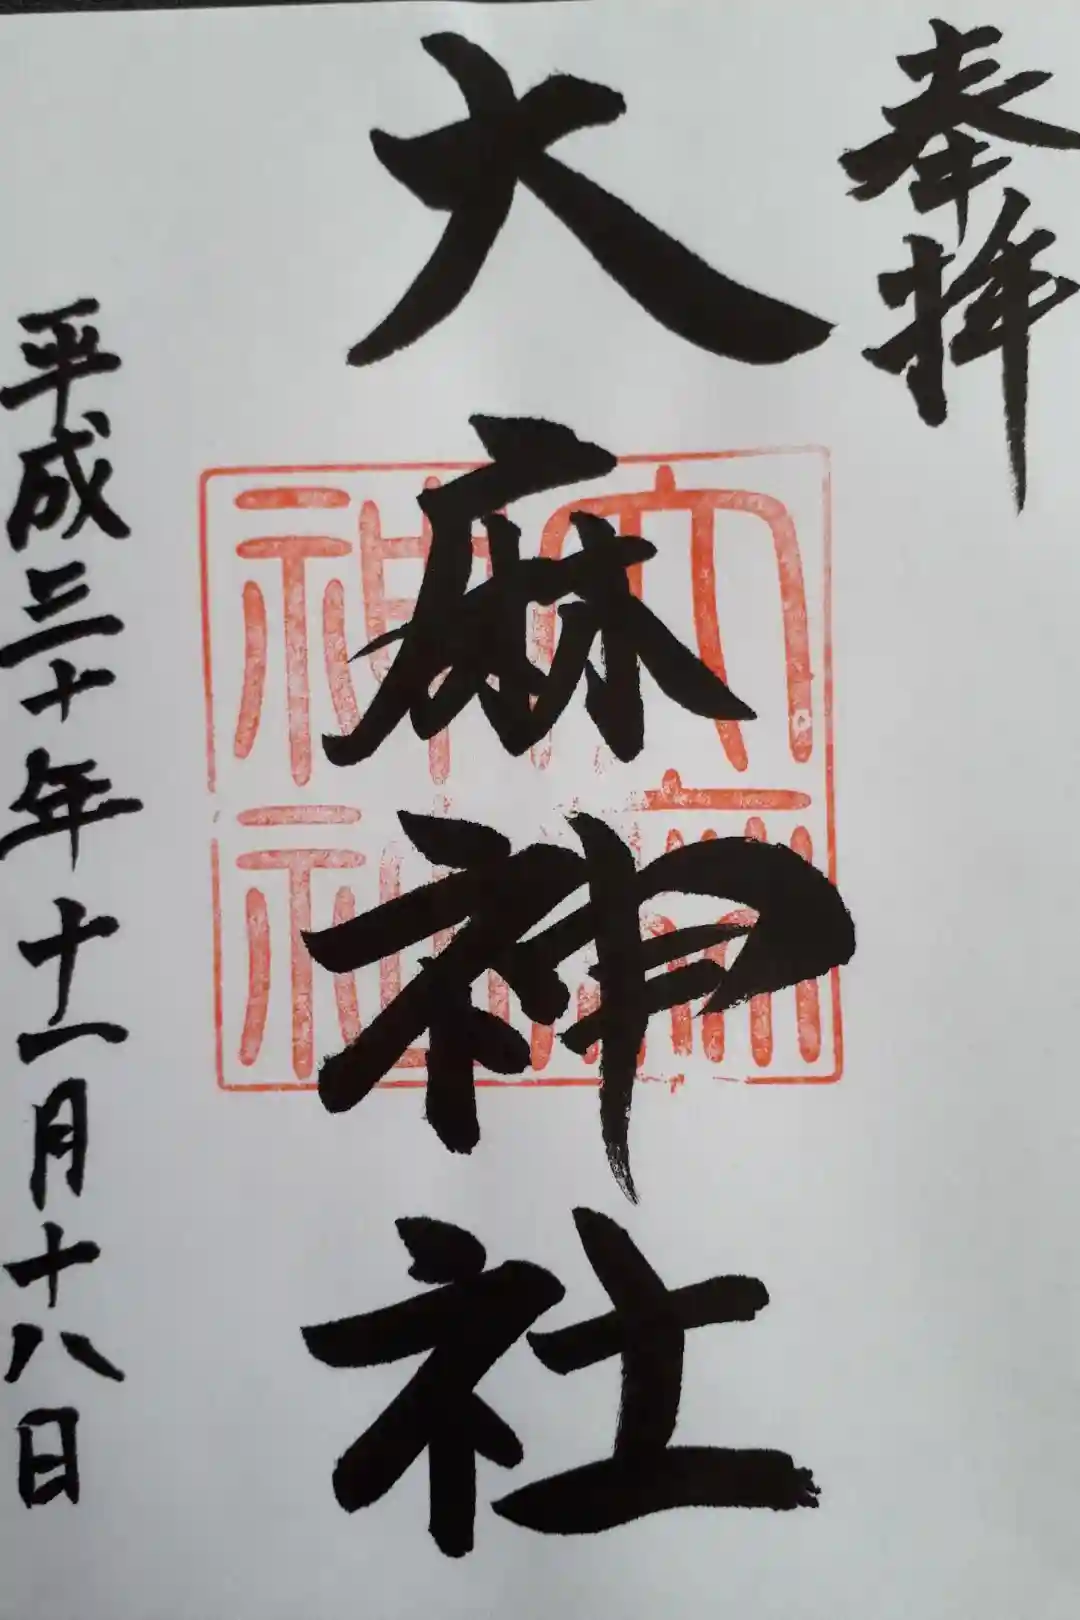 奉拝
大麻神社
大麻神社
平成三十年十一月十八日